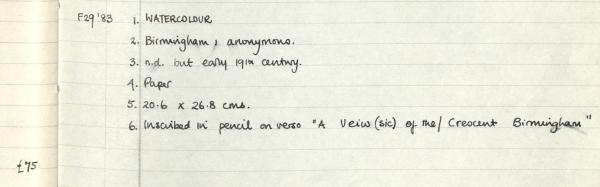 F29 '83 1. WATERCOLOUR
2. Birmingham, anonymous.
3. n.d. but early 19th century.
4. Paper
5. 20.6 x 26.8 cms.
6. Inscribed in pencil on verso "A Veiw (sic) of the/ Crescent Birmingham"
£75